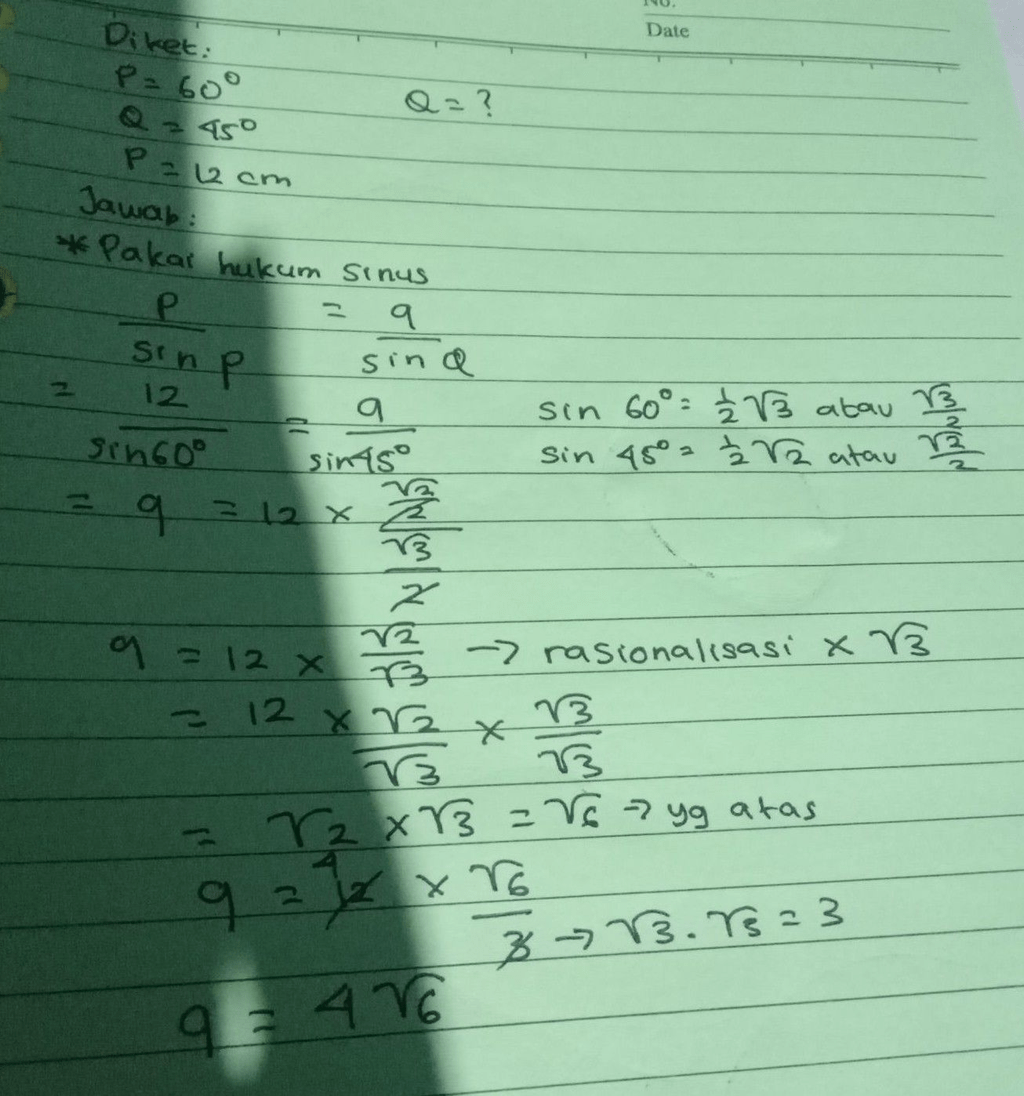 No.
Date
Diket:
P = 60°
Q = ?
Q = 45°
P = 12 cm
Jawab:
* Pakai hukum sinus
p/sin P = q/sin Q
= 12/sin60° = q/sin45°
sin 60° = 1/2 √3 atau √3/2
sin 45° = 1/2 √2 atau √2/2
= q = 12 × (√2/2)/(√3/2)
q = 12 × √2/√3 → rasionalisasi × √3
= 12 × √2/√3 × √3/√3
= √2 × √3 = √6 → yg atas
q = 12 4 × √6/3 → √3 . √3 = 3
q = 4 √6